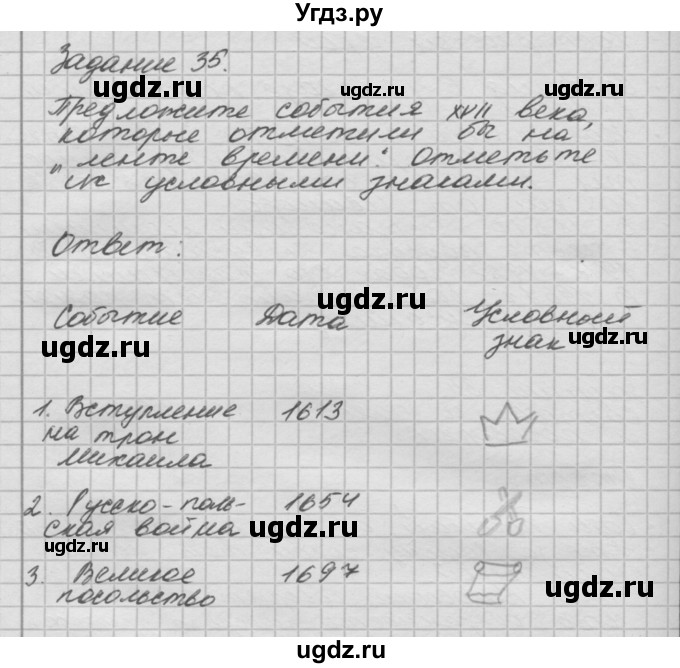 Угдз.ру
Задание 35.
Предложите события XVII века,
которые отметили бы на
"ленте времени". Отметьте
их условными знаками.
ugdz.ru
ugdz.ru
ugdz.ru
Ответ:
ugdz.ru
Событие Дата Условный
знак
ugdz.ru ugdz.ru
1. Вступление 1613
на трон
Михаила
2. Русско-поль- 1654
ская война
ugdz.ru ugdz.ru
3. Великое 1697
посольство
ugdz.ru
ugdz.ru